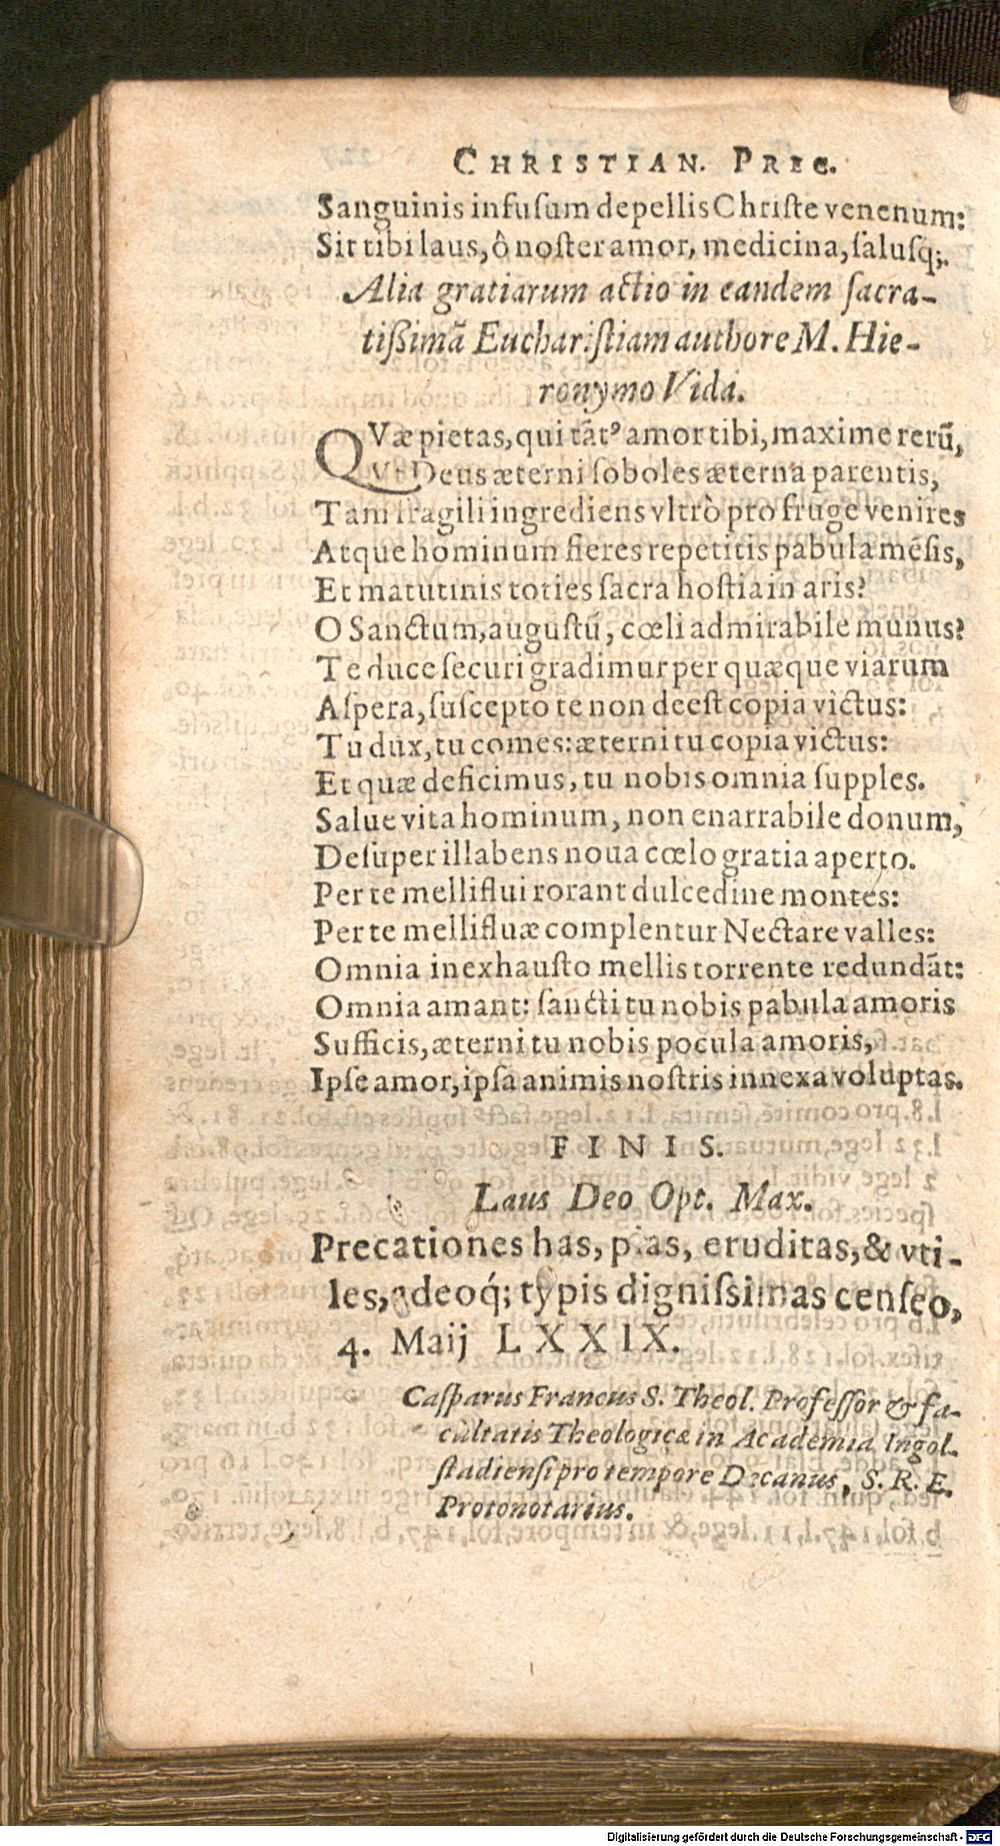 CHRISTIAN. PREC.
Sanguinis infusum depellis Christe venenum:
Sit tibi laus, ô noster amor, medicina, salusq́;.
Alia gratiarum actio in eandem sacra-
tißimā Eucharistiam authore M. Hie-
ronymo Vida.
QVæ pietas, qui tāt⁹ amor tibi, maxime rerū,
Vt Deus æterni soboles æterna parentis,
Tam fragili ingrediens vltrò pro fruge venires
Atque hominum fieres repetitis pabula mēsis,
Et matutinis toties sacra hostia in aris?
O Sanctum, augustū, cœli admirabile munus?
Te duce securi gradimur per quæque viarum
Aspera, suscepto te non deest copia victus:
Tu dux, tu comes: æterni tu copia victus:
Et quæ deficimus, tu nobis omnia supples.
Salue vita hominum, non enarrabile donum,
Desuper illabens noua cœlo gratia aperto.
Per te melliflui rorant dulcedine montes:
Per te mellifluæ complentur Nectare valles:
Omnia inexhausto mellis torrente redundāt:
Omnia amant: sancti tu nobis pabula amoris
Sufficis, æterni tu nobis pocula amoris,
Ipse amor, ipsa animis nostris innexa voluptas.
FINIS.
Laus Deo Opt. Max.
Precationes has, pias, eruditas, & vti-
les, adeoq́; typis dignissimas censeo,
4. Maij LXXIX.
Casparus Francus S. Theol. Professor & fa-
cultatis Theologicæ in Academia Ingol-
stadiensi pro tempore Decanus, S. R. E.
Protonotarius.
Digitalisierung gefördert durch die Deutsche Forschungsgemeinschaft - DFG